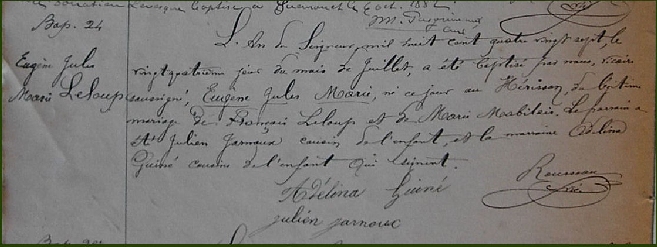 Bap. 24
Eugène Jules
Marie Leloup
L'An du Seigneur mil huit cent quatre vingt sept, le
vingtquatrième jour du mois de Juillet, a été baptisé par nous, vicaire
soussigné, Eugène Jules Marie, né ce jour au Hérisson, du légitime
mariage de François Leloup et de Marie Mabilais. Le parrain a
été Julien Jarnoux cousin de l'enfant, et la marraine Adélina
Guiné cousine de l'enfant qui signent.
Adélina Guiné
julien jarnoux
Rousseau
vic.